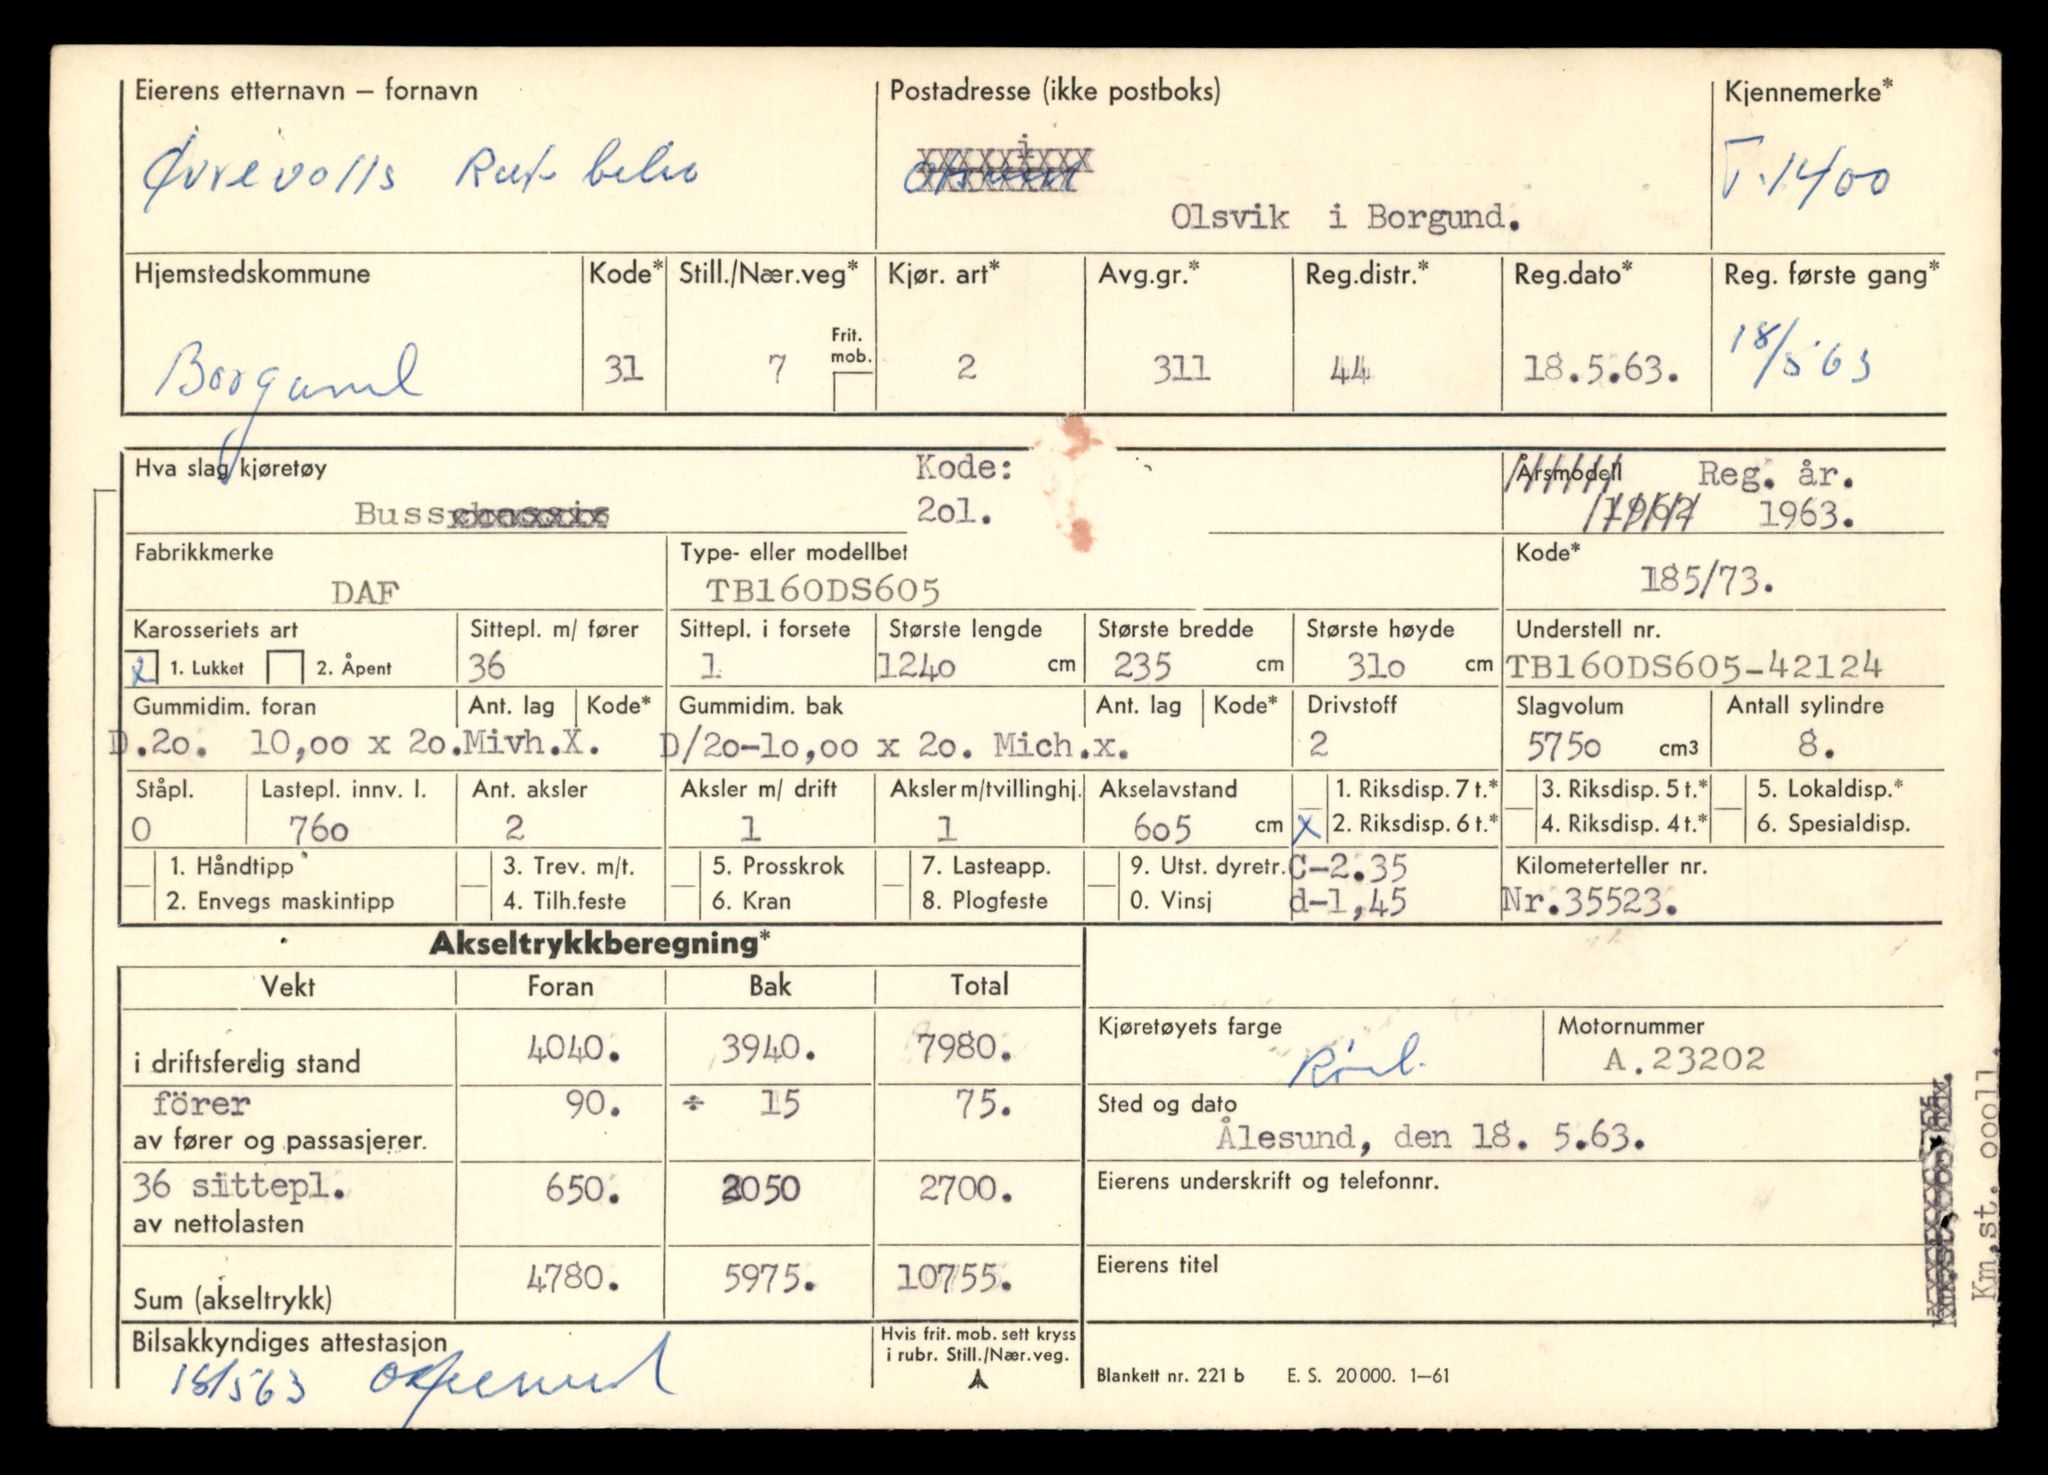 Eierens etternavn – fornavn
Postadresse (ikke postboks)
Kjennemerke*
Øvrevolls Rutebilen
i
Olsvik i Borgund.
T-1400
Hjemstedskommune
Kode*
Still./Nær.veg*
Kjør. art*
Avg.gr.*
Reg.distr.*
Reg.dato*
Reg. første gang*
Frit. mob.
Borgund
31
7
2
311
44
18.5.63.
18/5 63
Hva slag kjøretøy
Kode:
Årsmodell Reg. år.
Busschassis
2o1.
1962 1963.
Fabrikkmerke
Type- eller modellbet
Kode*
DAF
TB160DS605
185/73.
Karosseriets art
Sittepl. m/ fører
Sittepl. i forsete
Største lengde
Største bredde
Største høyde
Understell nr.
x 1. Lukket 2. Åpent
36
1
124o cm
235 cm
31o cm
TB160DS605-42124
Gummidim. foran
Ant. lag
Kode*
Gummidim. bak
Ant. lag
Kode*
Drivstoff
Slagvolum
Antall sylindre
D.2o. 1o,oo x 2o.Mivh.X.
D/2o-1o,oo x 2o. Mich.x.
2
575o cm3
8.
Ståpl.
Lastepl. innv. l.
Ant. aksler
Aksler m/ drift
Aksler m/tvillinghj.
Akselavstand
1. Riksdisp. 7 t.*
3. Riksdisp. 5 t.*
5. Lokaldisp.*
0
76o
2
1
1
6o5 cm
x 2. Riksdisp. 6 t.*
4. Riksdisp. 4 t.*
6. Spesialdisp.
1. Håndtipp
3. Trev. m/t.
5. Prosskrok
7. Lasteapp.
9. Utst. dyretr.
C-2.35
Kilometerteller nr.
2. Envegs maskintipp
4. Tilh.feste
6. Kran
8. Plogfeste
0. Vinsj
d-1,45
Nr.35523.
Akseltrykkberegning*
Vekt
Foran
Bak
Total
i driftsferdig stand
4040.
3940.
7980.
Kjøretøyets farge
Rød.
Motornummer
A.23202
förer
90.
÷ 15
75.
av fører og passasjerer.
Sted og dato
Ålesund, den 18. 5.63.
36 sittepl.
650.
2050
2700.
av nettolasten
Eierens underskrift og telefonnr.
Sum (akseltrykk)
4780.
5975.
10755.
Eierens titel
Bilsakkyndiges attestasjon
18/5 63
Hvis frit. mob. sett kryss
i rubr. Still./Nær.veg.
Blankett nr. 221 b E. S. 20000. 1–61
Km.st. oooll.